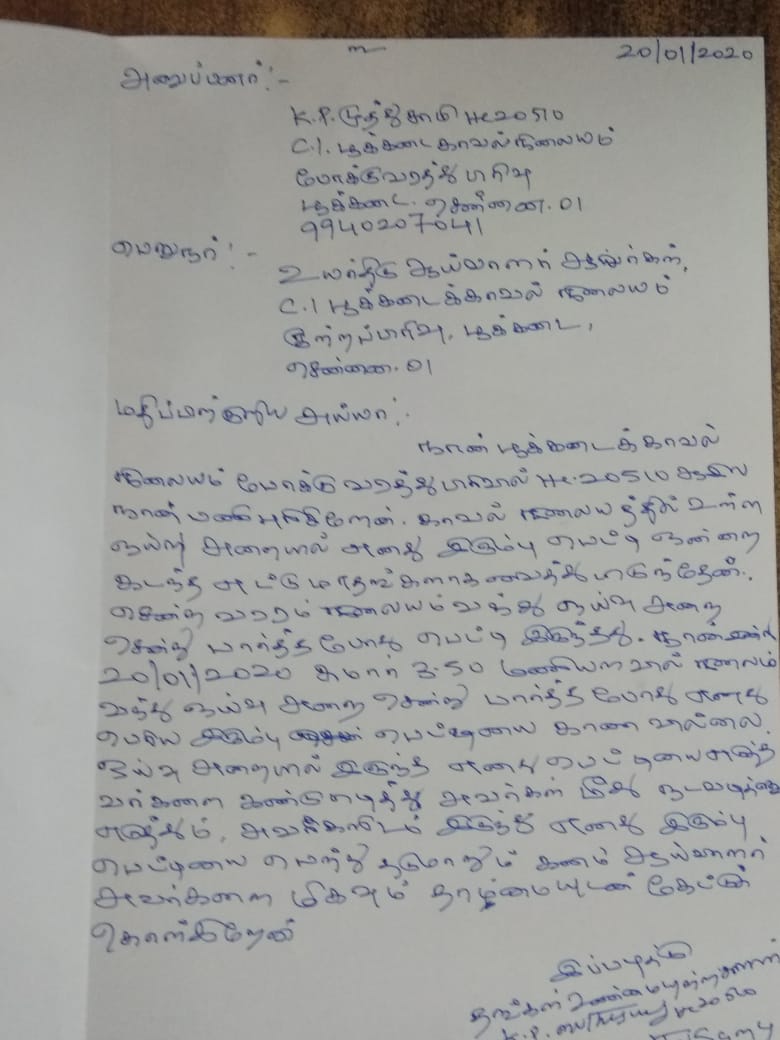 20/01/2020
அனுப்புனர்:-
K.P. முத்துசாமி HC 20510
C.1. பூக்கடை காவல் நிலையம்
போக்குவரத்து பிரிவு
பூக்கடை. சென்னை. 01
9940207041
பெறுநர்:-
உயர்திரு ஆய்வாளர் அவர்கள்,
C.1 பூக்கடைக்காவல் நிலையம்
குற்றப்பிரிவு, பூக்கடை,
சென்னை. 01
மதிப்பிற்குரிய அய்யா:.
நான் பூக்கடைக் காவல்
நிலையம் போக்குவரத்து பிரிவில் HC. 20510 ஆகிய
நான் பணிபுரிகிறேன். காவல் நிலையத்தில் உள்ள
ஓய்வு அறையில் எனது இரும்பு பெட்டி ஒன்றை
கடந்த எட்டு மாதங்களாக வைத்து
சென்ற வாரம் நிலையம் வந்து ஓய்வு அறை
சென்று பார்த்த போது பெட்டி இருந்தது. நான்
20/01/2020 சுமார் 3.50 மணியளவில் நிலையம்
வந்து ஓய்வு அறை சென்று பார்த்த போது எனது
பெரிய இரும்பு பெட்டியை காண வில்லை.
ஓய்வு அறையில் இருந்த எனது பெட்டியை எடுத்த
வர்களை கண்டுபிடித்து அவர்கள் மீது நடவடிக்கை
எடுத்தும், அவர்களிடம் இருந்து எனது இரும்பு
பெட்டியை பெற்று தருமாறும் கனம் ஆய்வாளர்
அவர்களை மிகவும் தாழ்மையுடன் கேட்டுக்
கொள்கிறேன்
இப்படிக்கு
தங்கள் உண்மையுள்ள
K.P. HC 20510